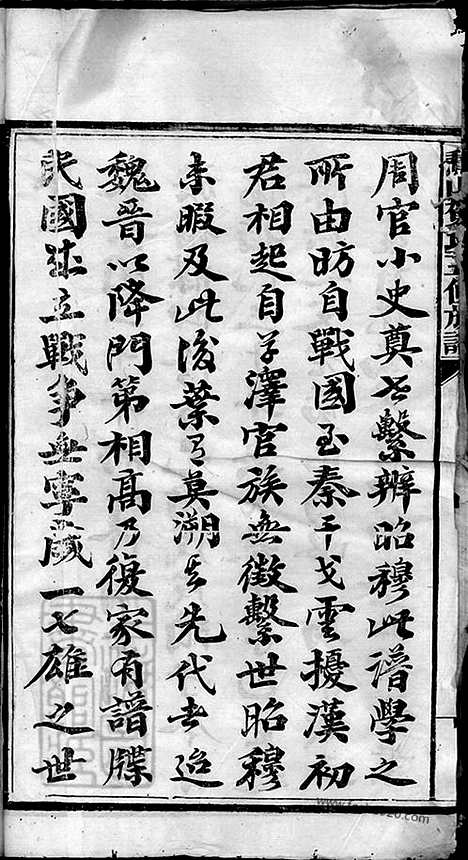 周官小史奠世繫辨昭穆此譜學之
所由昉自戰國至秦干戈雲擾漢初
君相起自草澤官族無徵繫世昭穆
未暇及此後葉有莫溯其先代者迨
魏晉以降門第相高乃復家有譜牒
民國甡立戰爭無寧歲一七雄之世
五修族譜